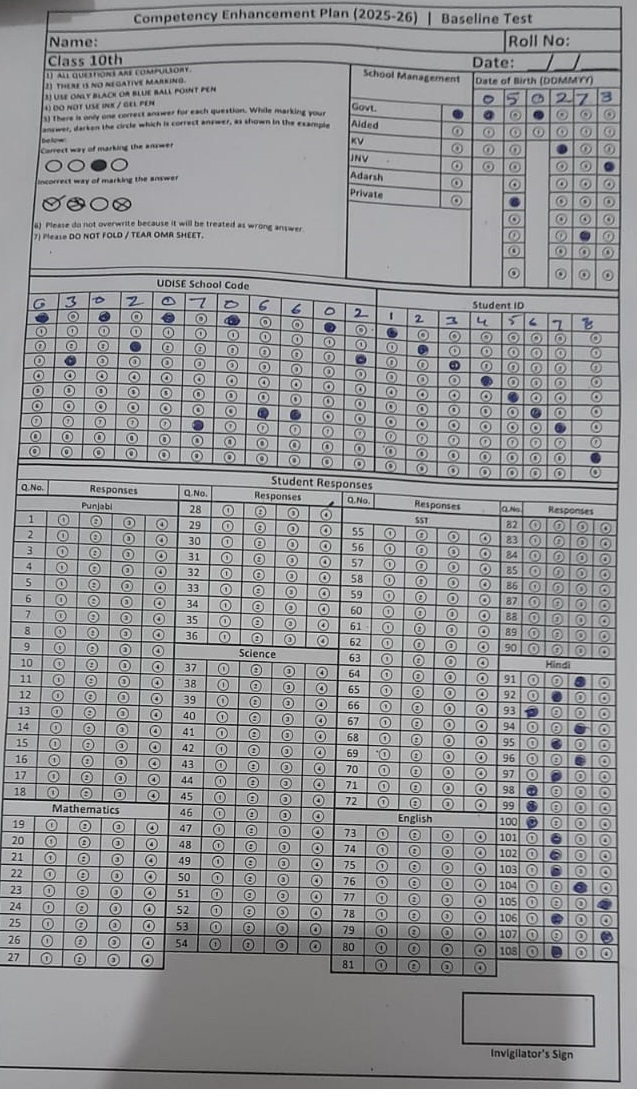 Competency Enhancement Plan (2025-26) | Baseline Test
Name:
Roll No:
Class 10th
Date: __/__/__
1) ALL QUESTIONS ARE COMPULSORY.
2) THERE IS NO NEGATIVE MARKING.
3) USE ONLY BLACK OR BLUE BALL POINT PEN
4) DO NOT USE INK / GEL PEN
5) There is only one correct answer for each question. While marking your
answer, darken the circle which is correct answer, as shown in the example
below:
Correct way of marking the answer
Incorrect way of marking the answer
6) Please do not overwrite because it will be treated as wrong answer.
7) Please DO NOT FOLD / TEAR OMR SHEET.
School Management
Govt.
Aided
KV
JNV
Adarsh
Private
Date of Birth (DDMMYY)
0 5 0 2 7 3
UDISE School Code
0 3 0 2 0 7 0 6 6 0 2
Student ID
1 2 3 4 5 6 7 8
Student Responses
Q.No. Responses
Punjabi
1 ① ② ③ ④
2 ① ② ③ ④
3 ① ② ③ ④
4 ① ② ③ ④
5 ① ② ③ ④
6 ① ② ③ ④
7 ① ② ③ ④
8 ① ② ③ ④
9 ① ② ③ ④
10 ① ② ③ ④
11 ① ② ③ ④
12 ① ② ③ ④
13 ① ② ③ ④
14 ① ② ③ ④
15 ① ② ③ ④
16 ① ② ③ ④
17 ① ② ③ ④
18 ① ② ③ ④
Mathematics
19 ① ② ③ ④
20 ① ② ③ ④
21 ① ② ③ ④
22 ① ② ③ ④
23 ① ② ③ ④
24 ① ② ③ ④
25 ① ② ③ ④
26 ① ② ③ ④
27 ① ② ③ ④
Q.No. Responses
28 ① ② ③ ④
29 ① ② ③ ④
30 ① ② ③ ④
31 ① ② ③ ④
32 ① ② ③ ④
33 ① ② ③ ④
34 ① ② ③ ④
35 ① ② ③ ④
36 ① ② ③ ④
Science
37 ① ② ③ ④
38 ① ② ③ ④
39 ① ② ③ ④
40 ① ② ③ ④
41 ① ② ③ ④
42 ① ② ③ ④
43 ① ② ③ ④
44 ① ② ③ ④
45 ① ② ③ ④
46 ① ② ③ ④
47 ① ② ③ ④
48 ① ② ③ ④
49 ① ② ③ ④
50 ① ② ③ ④
51 ① ② ③ ④
52 ① ② ③ ④
53 ① ② ③ ④
54 ① ② ③ ④
Q.No. Responses
SST
55 ① ② ③ ④
56 ① ② ③ ④
57 ① ② ③ ④
58 ① ② ③ ④
59 ① ② ③ ④
60 ① ② ③ ④
61 ① ② ③ ④
62 ① ② ③ ④
63 ① ② ③ ④
64 ① ② ③ ④
65 ① ② ③ ④
66 ① ② ③ ④
67 ① ② ③ ④
68 ① ② ③ ④
69 ① ② ③ ④
70 ① ② ③ ④
71 ① ② ③ ④
72 ① ② ③ ④
English
73 ① ② ③ ④
74 ① ② ③ ④
75 ① ② ③ ④
76 ① ② ③ ④
77 ① ② ③ ④
78 ① ② ③ ④
79 ① ② ③ ④
80 ① ② ③ ④
81 ① ② ③ ④
Q.No. Responses
82 ① ② ③ ④
83 ① ② ③ ④
84 ① ② ③ ④
85 ① ② ③ ④
86 ① ② ③ ④
87 ① ② ③ ④
88 ① ② ③ ④
89 ① ② ③ ④
90 ① ② ③ ④
Hindi
91
92
93
94
95
96
97
98
99
100
101
102
103
104
105
106
107
108
Invigilator's Sign